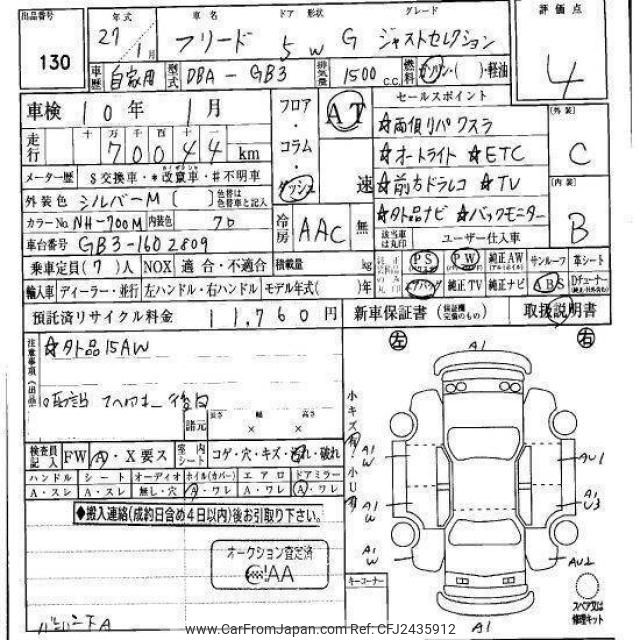 出品番号 130
年式 27年 1月
車名 フリード
ドア 形状 5 W
グレード G ジャストセレクション
評価点 4
車歴 自家用
型式 DBA-GB3
排気量 1500 c.c.
燃料 ガソリン・( )・軽油
車検 10年 1月
走行 十 万 千 百 十 一
70044 km
メーター歴 $交換車・*改竄車・#不明車
外装色 シルバーM 色替は色替車と記入
カラーNo. NH-700M 内装色 クロ
車台番号 GB3-1602809
フロア・コラム・ダッシュ
AT 速
冷房 AAC 無
セールスポイント
☆両側リパワスラ
☆オートライト ☆ETC
☆前方ドラレコ ☆TV
☆外品ナビ ☆バックモニター
[外装] C
[内装] B
該当車は丸印 ユーザー仕入車
乗車定員(7)人 NOX 適合・不適合 積載量 kg
PS PW 純正AW サンルーフ 革シート
エアバッグ 純正TV 純正ナビ ABS
輸入車 ディーラー・並行 左ハンドル・右ハンドル モデル年式( )年
預託済リサイクル料金 11,760円
新車保証書 取扱説明書
注意事項
☆外品15AW
諸元 長さ 幅 高さ
× ×
検査員記入 FW A・X要ス 室内シート コゲ・穴・キズ・汚れ・破れ
ハンドル シート オーディオ ホイル(カバー) エアロ ドアミラー
A・スレ A・スレ 無し・穴 A・ワレ A・ワレ A・ワレ
◆搬入連絡(成約日含め4日以内)後お引取り下さい。
オークション査定済
AA
左 右
A1
小キズ有
小U有
A1
W
AU1
A1
W
A1
U3
A1
W
AU2
A1
キーコーナー
スペア又は修理キット
www.CarFromJapan.com Ref: CFJ2435912